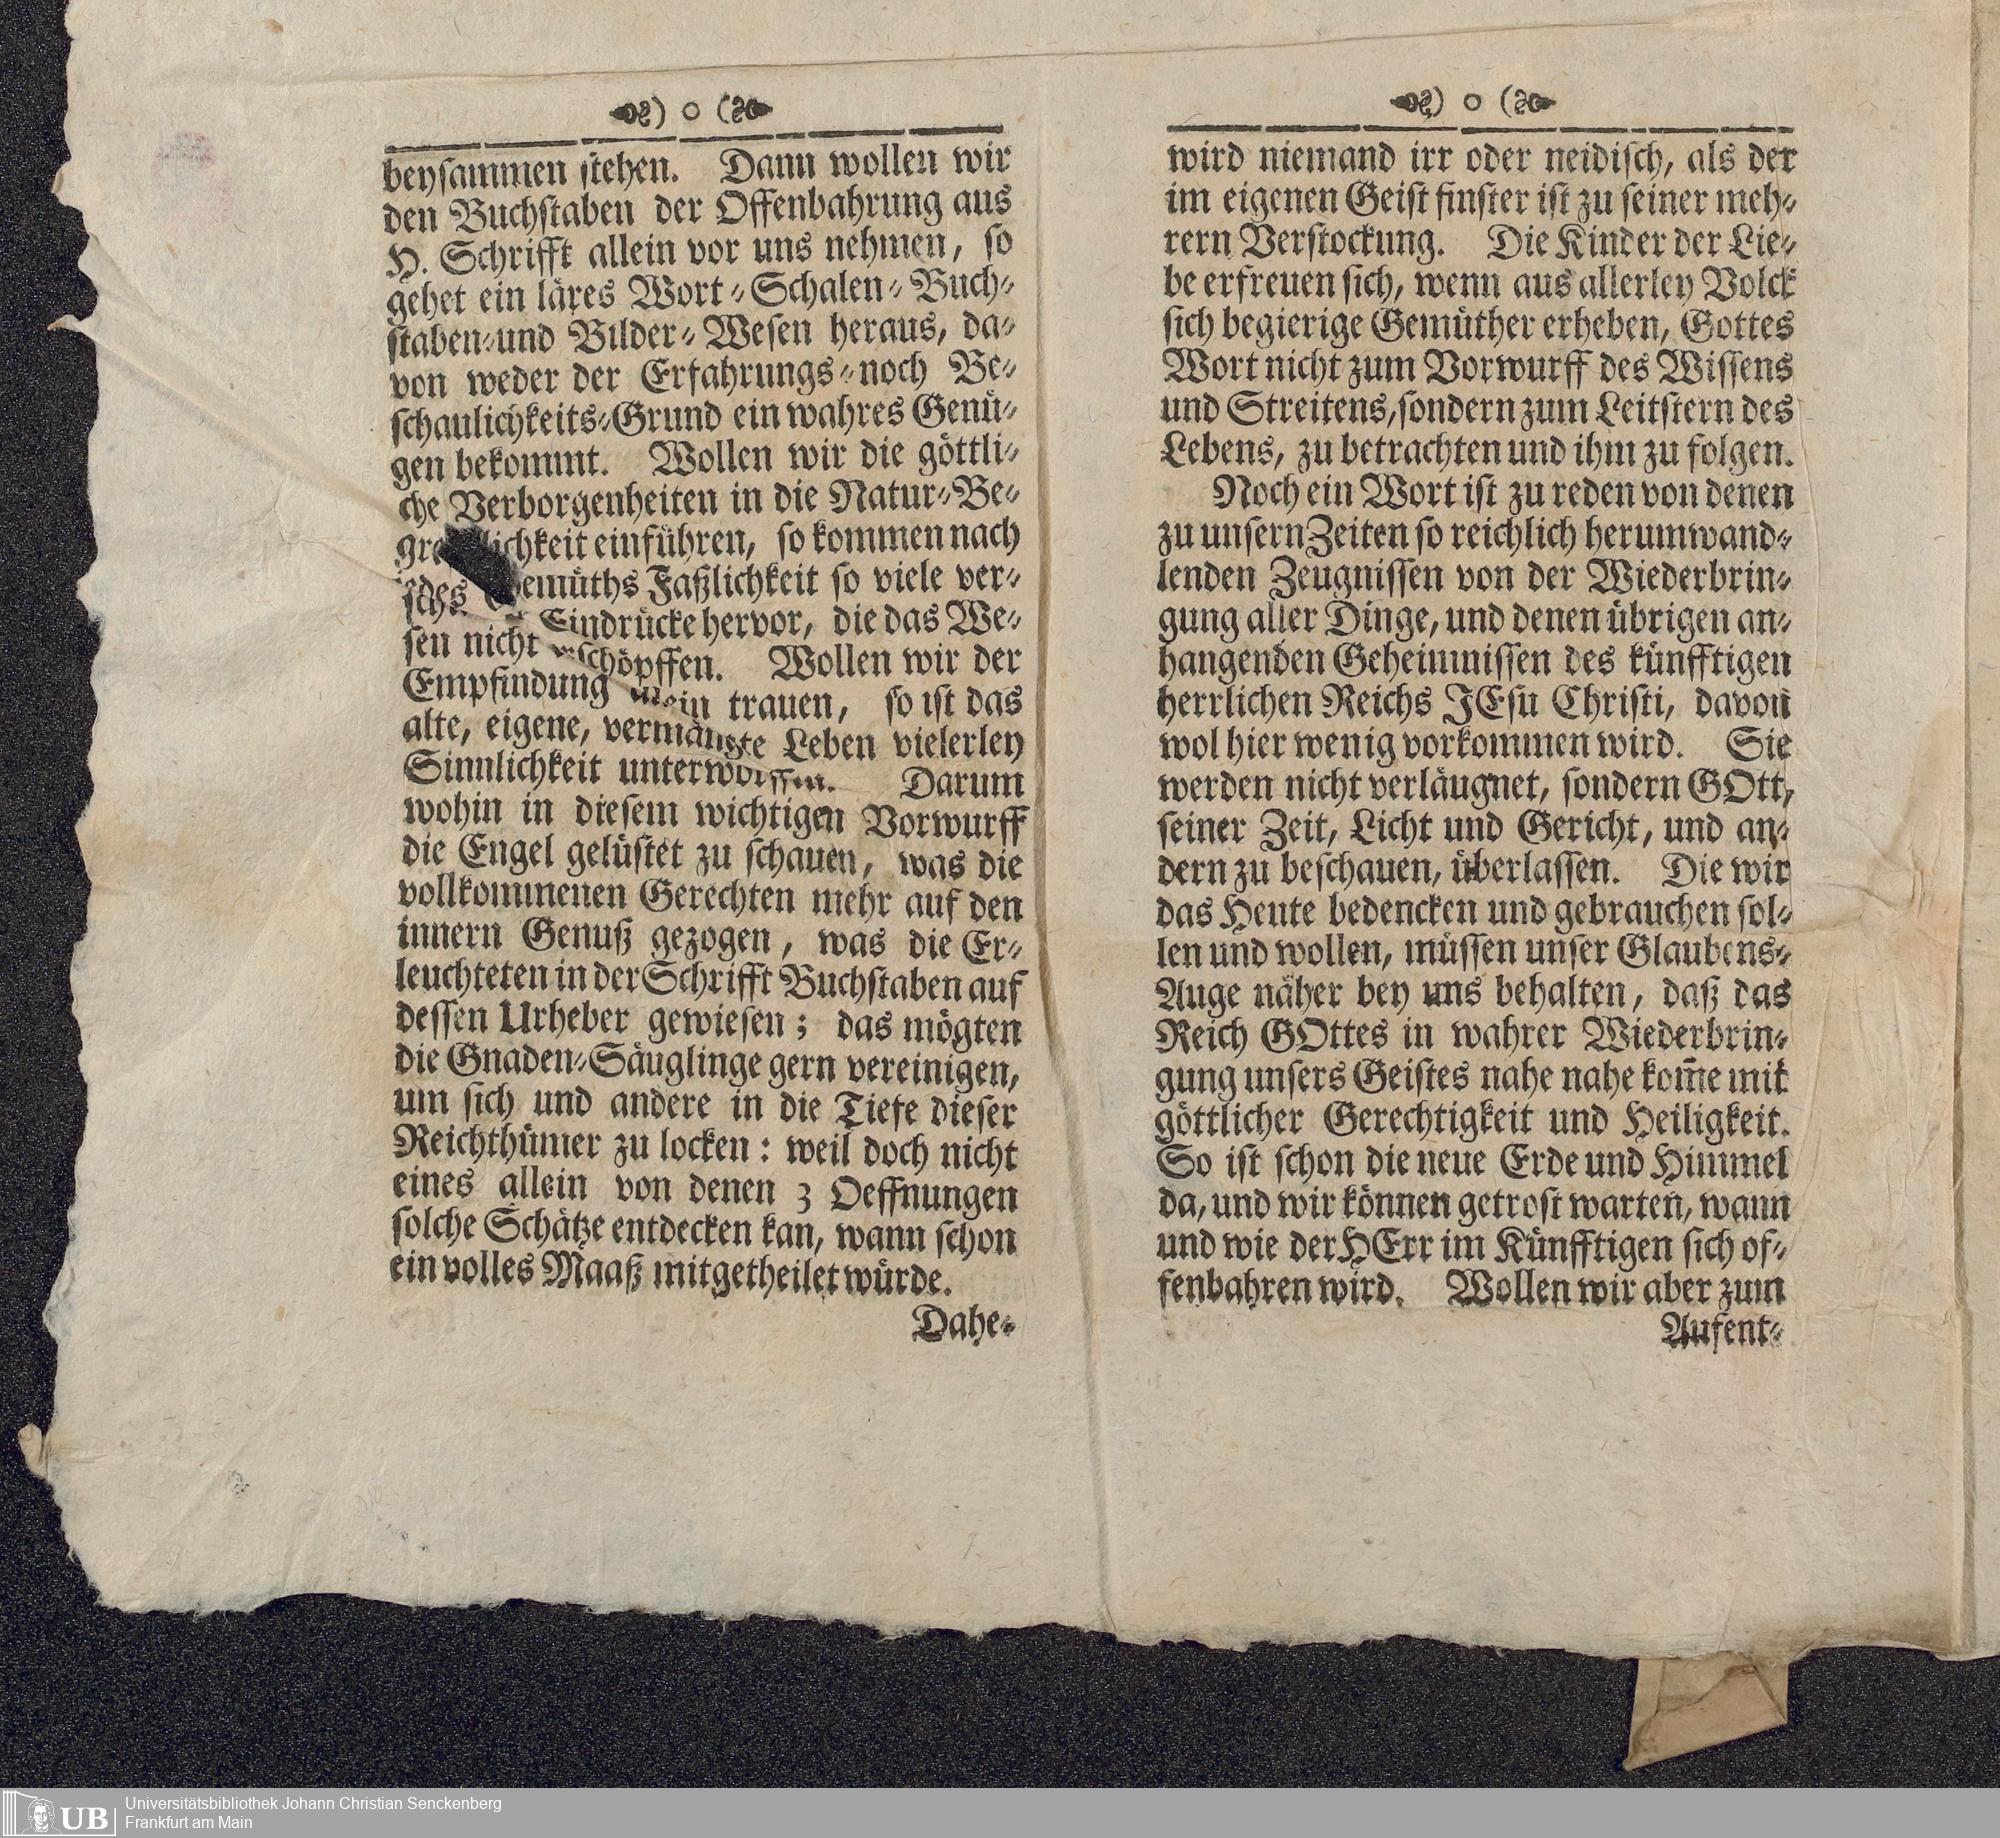 ) o (
beysammen stehen. Dann wollen wir
den Buchstaben der Offenbahrung aus
H. Schrifft allein vor uns nehmen, so
gehet ein läres Wort-Schalen-Buch-
staben-und Bilder-Wesen heraus, da-
von weder der Erfahrungs-noch Be-
schaulichkeits-Grund ein wahres Genü-
gen bekommt. Wollen wir die göttli-
che Verborgenheiten in die Natur-Be-
einführen, so kommen nach
Faßlichkeit so viele ver-
Eindrücke hervor, die das We-
sen nicht erschöpffen. Wollen wir der
Empfindung allein trauen, so ist das
alte, eigene, vermängte Leben vielerley
Sinnlichkeit unterworffen. Darum
wohin in diesem wichtigen Vorwurff
die Engel gelüstet zu schauen, was die
vollkommenen Gerechten mehr auf den
innern Genuß gezogen, was die Er-
leuchteten in der Schrifft Buchstaben auf
dessen Urheber gewiesen; das mögten
die Gnaden-Säuglinge gern vereinigen,
um sich und andere in die Tiefe dieser
Reichthümer zu locken: weil doch nicht
eines allein von denen 3 Oeffnungen
solche Schätze entdecken kan, wann schon
ein volles Maaß mitgetheilet würde.
Dahe-
) o (
wird niemand irr oder neidisch, als der
im eigenen Geist finster ist zu seiner meh-
rern Verstockung. Die Kinder der Lie-
be erfreuen sich, wenn aus allerley Volck
sich begierige Gemüther erheben, Gottes
Wort nicht zum Vorwurff des Wissens
und Streitens, sondern zum Leitstern des
Lebens, zu betrachten und ihm zu folgen.
Noch ein Wort ist zu reden von denen
zu unsern Zeiten so reichlich herumwand-
lenden Zeugnissen von der Wiederbrin-
gung aller Dinge, und denen übrigen an-
hangenden Geheimnissen des künfftigen
herrlichen Reichs JEsu Christi, davon
wol hier wenig vorkommen wird. Sie
werden nicht verläugnet, sondern GOtt,
seiner Zeit, Licht und Gericht, und an-
dern zu beschauen, überlassen. Die wir
das Heute bedencken und gebrauchen sol-
len und wollen, müssen unser Glaubens-
Auge näher bey uns behalten, daß das
Reich GOttes in wahrer Wiederbrin-
gung unsers Geistes nahe nahe kom̄e mit
göttlicher Gerechtigkeit und Heiligkeit.
So ist schon die neue Erde und Himmel
da, und wir können getrost warten, wann
und wie der HErr im Künfftigen sich of-
fenbahren wird. Wollen wir aber zum
Aufent-
UB
Universitätsbibliothek Johann Christian Senckenberg
Frankfurt am Main